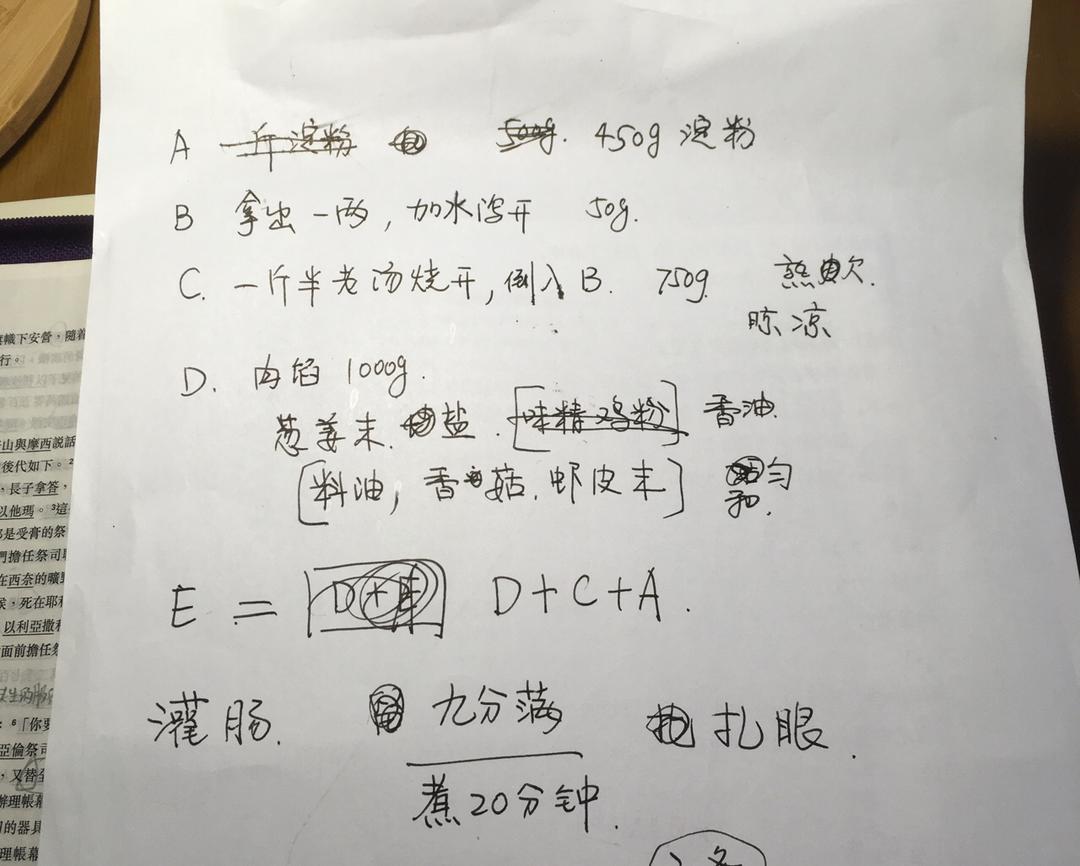 A 一斤淀粉 500g. 450g 淀粉
B 拿出一两,加水泻开 50g.
C. 一斤半老汤烧开,倒入B. 750g. 熟欠.
晾凉
D. 肉馅 1000g.
葱姜末. 盐. [味精鸡粉] 香油.
[料油,香菇.虾皮末] 和匀.
E = D+E D+C+A.
灌肠. 九分满 扎眼.
煮20分钟.
旗幟下安營,隨着
行。
山與摩西說話
後代如下。
,長子拿答,
以他瑪。³這
是受膏的祭
們擔任祭司
在西奈的曠野
,死在耶和
以利亞撒和
面前擔任祭
:⁶「你要
亞倫祭司
,又替全
辦理帳幕
的器具
理帳幕